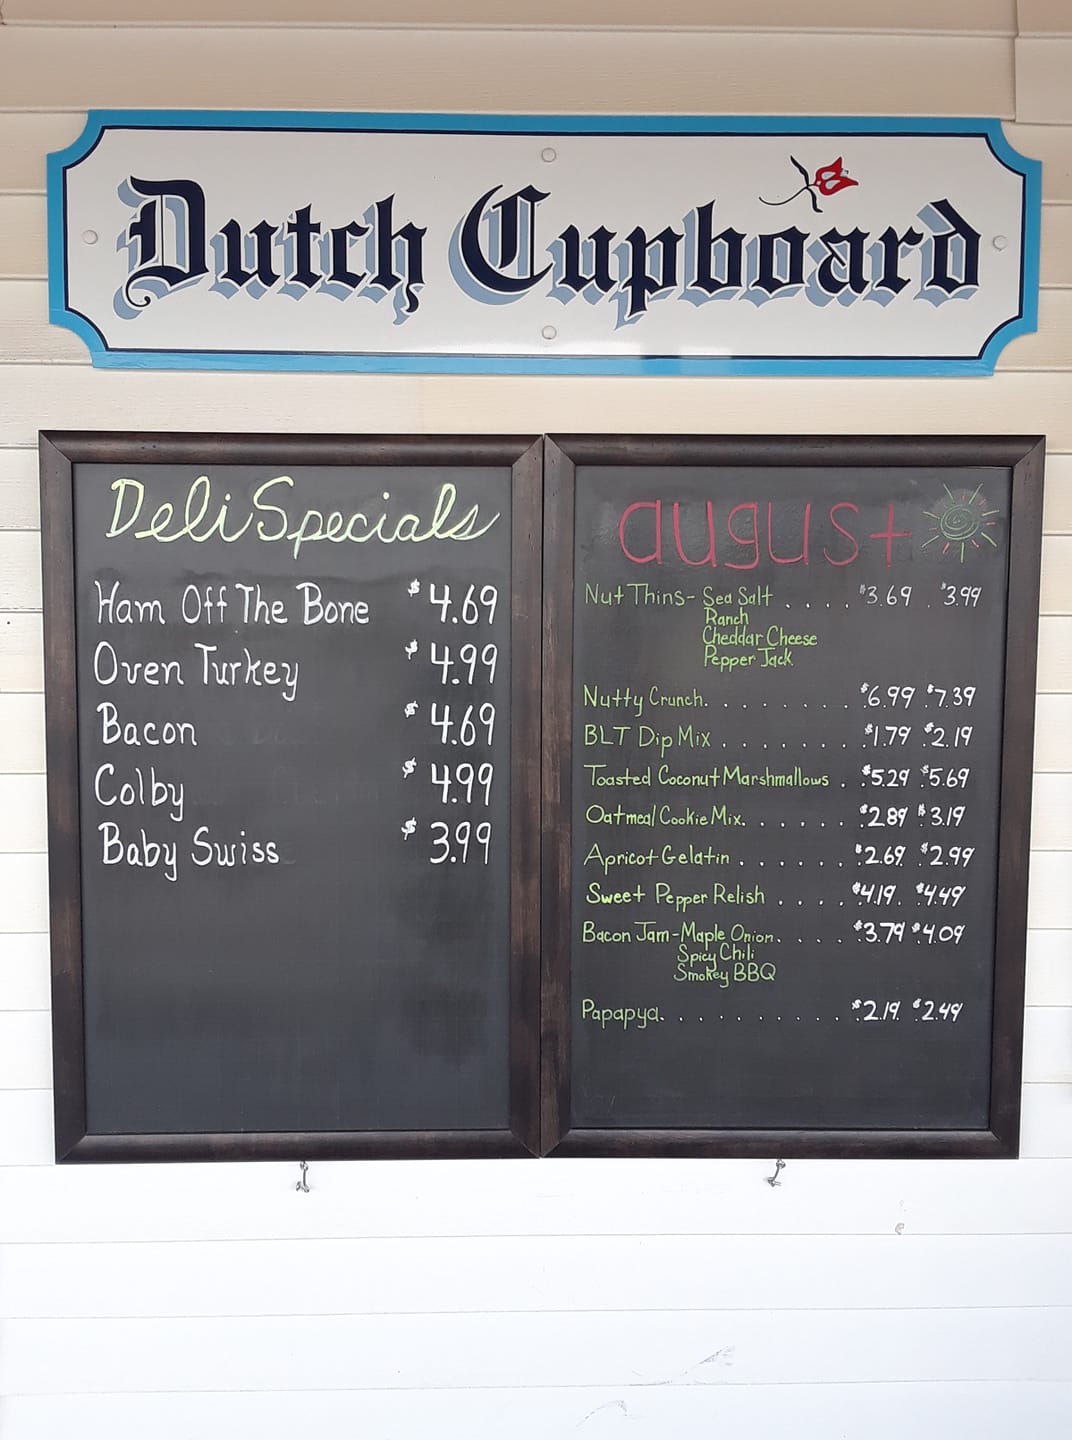 Dutch Cupboard
Deli Specials
Ham Off The Bone $4.69
Oven Turkey $4.99
Bacon $4.69
Colby $4.99
Baby Swiss $3.99
august
Nut Thins- Sea Salt . . . . $3.69 . $3.99
Ranch
Cheddar Cheese
Pepper Jack
Nutty Crunch. . . . . . . . . $6.99 $7.39
BLT Dip Mix . . . . . . . . $1.79 $2.19
Toasted Coconut Marshmallows . $5.29 $5.69
Oatmeal Cookie Mix. . . . . . $2.89 $3.19
Apricot Gelatin . . . . . . $2.69 $2.99
Sweet Pepper Relish . . . . $4.19. $4.49
Bacon Jam-Maple Onion. . . . $3.79 $4.09
Spicy Chili
Smokey BBQ
Papapya. . . . . . . . . . $2.19 $2.49